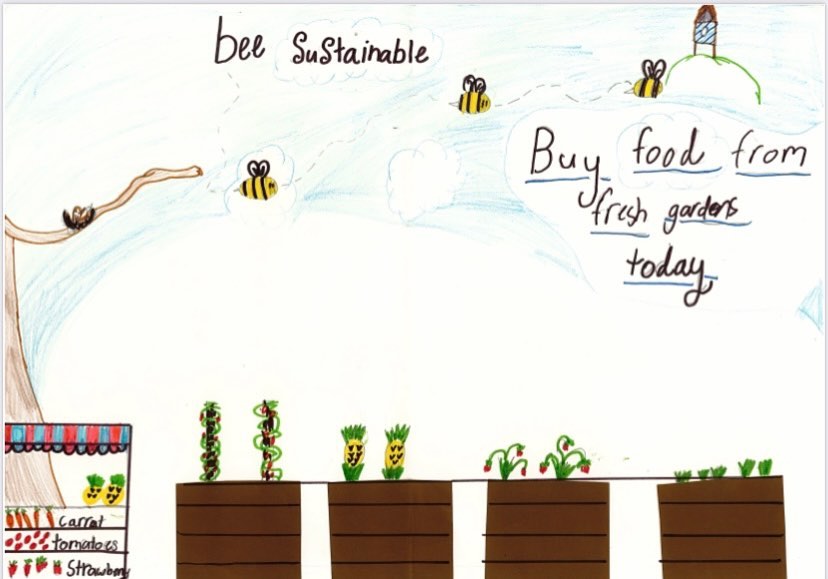 bee Sustainable
Buy food from
fresh gardens
today
Carrat
tomatoes
Strawberry